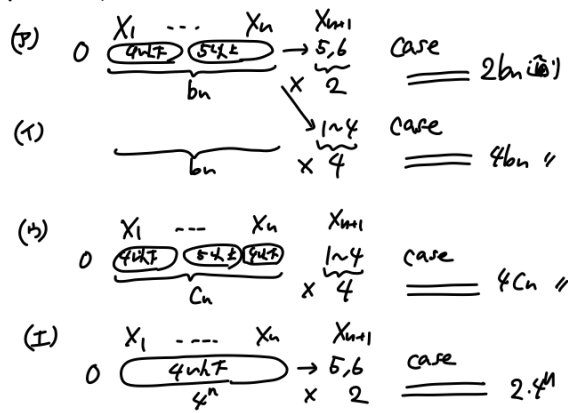 (ア) X₁ ... Xₙ Xₙ₊₁
0 4以下 5以上 → 5,6 case
bₙ × 2 2bₙ通り
(イ) 1~4 case
bₙ × 4 4bₙ 〃
(ウ) X₁ --- Xₙ Xₙ₊₁
0 4以下 5以上 4以下 1~4 case
Cₙ × 4 4Cₙ 〃
(エ) X₁ ---- Xₙ Xₙ₊₁
0 4以下 → 5,6 case
4ⁿ × 2 2·4ⁿ